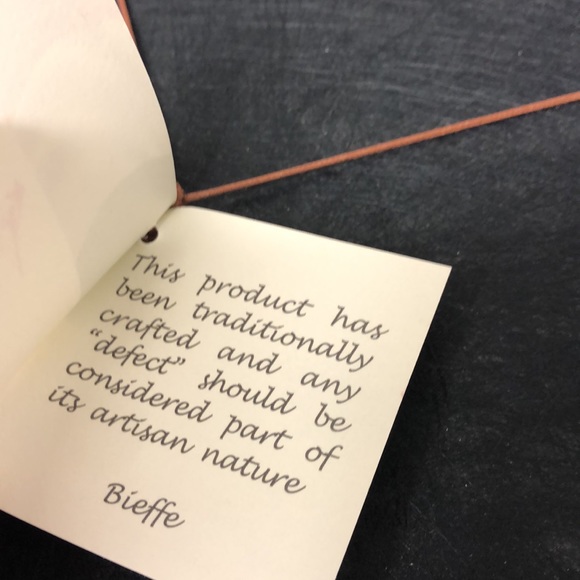 This product has
been traditionally
crafted and any
“defect” should be
considered part of
its artisan nature
Bieffe